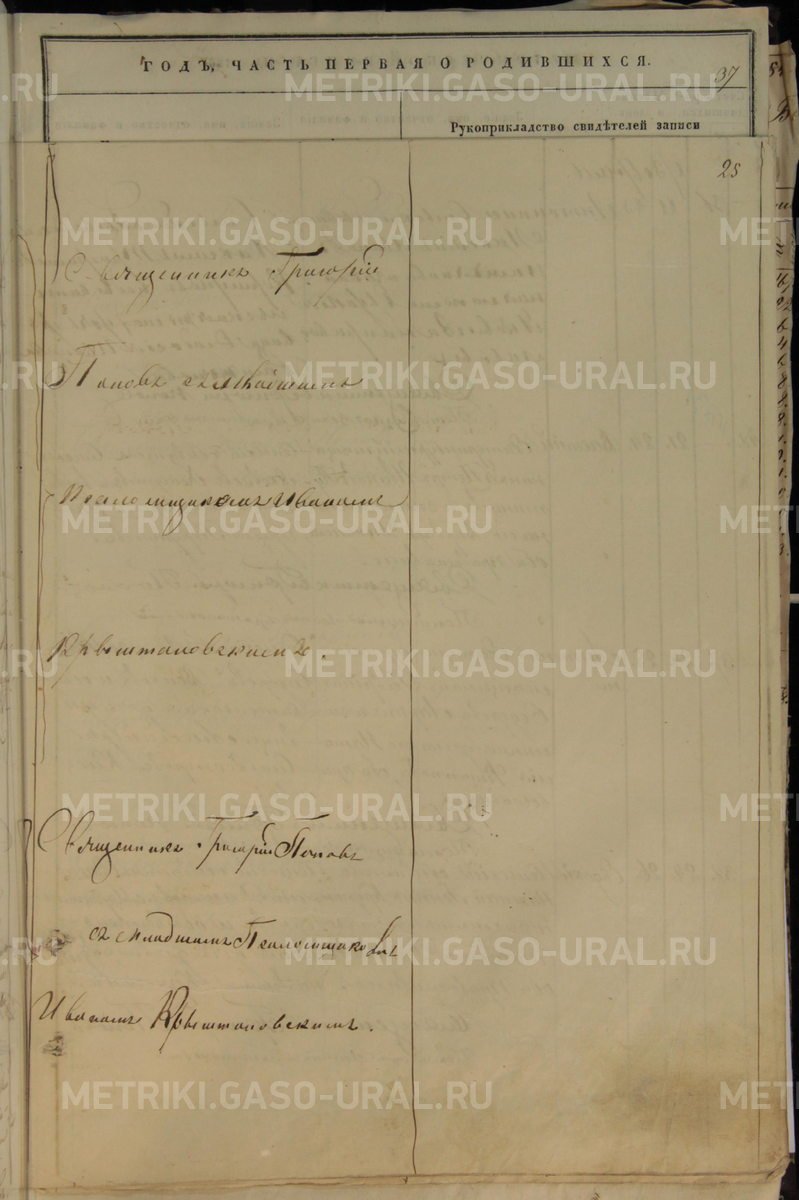 ГОДЪ, ЧАСТЬ ПЕРВАЯ О РОДИВШИХСЯ.
37
Рукоприкладство свидѣтелей записи
25
Священникъ Григорій
Поповъ съ младшимъ
Псаломщикомъ Иваномъ
Крыштановскимъ.
Священникъ Григорій Поповъ
съ младшимъ Псаломщикомъ
Иваномъ Крыштановскимъ.
METRIKI.GASO-URAL.RU